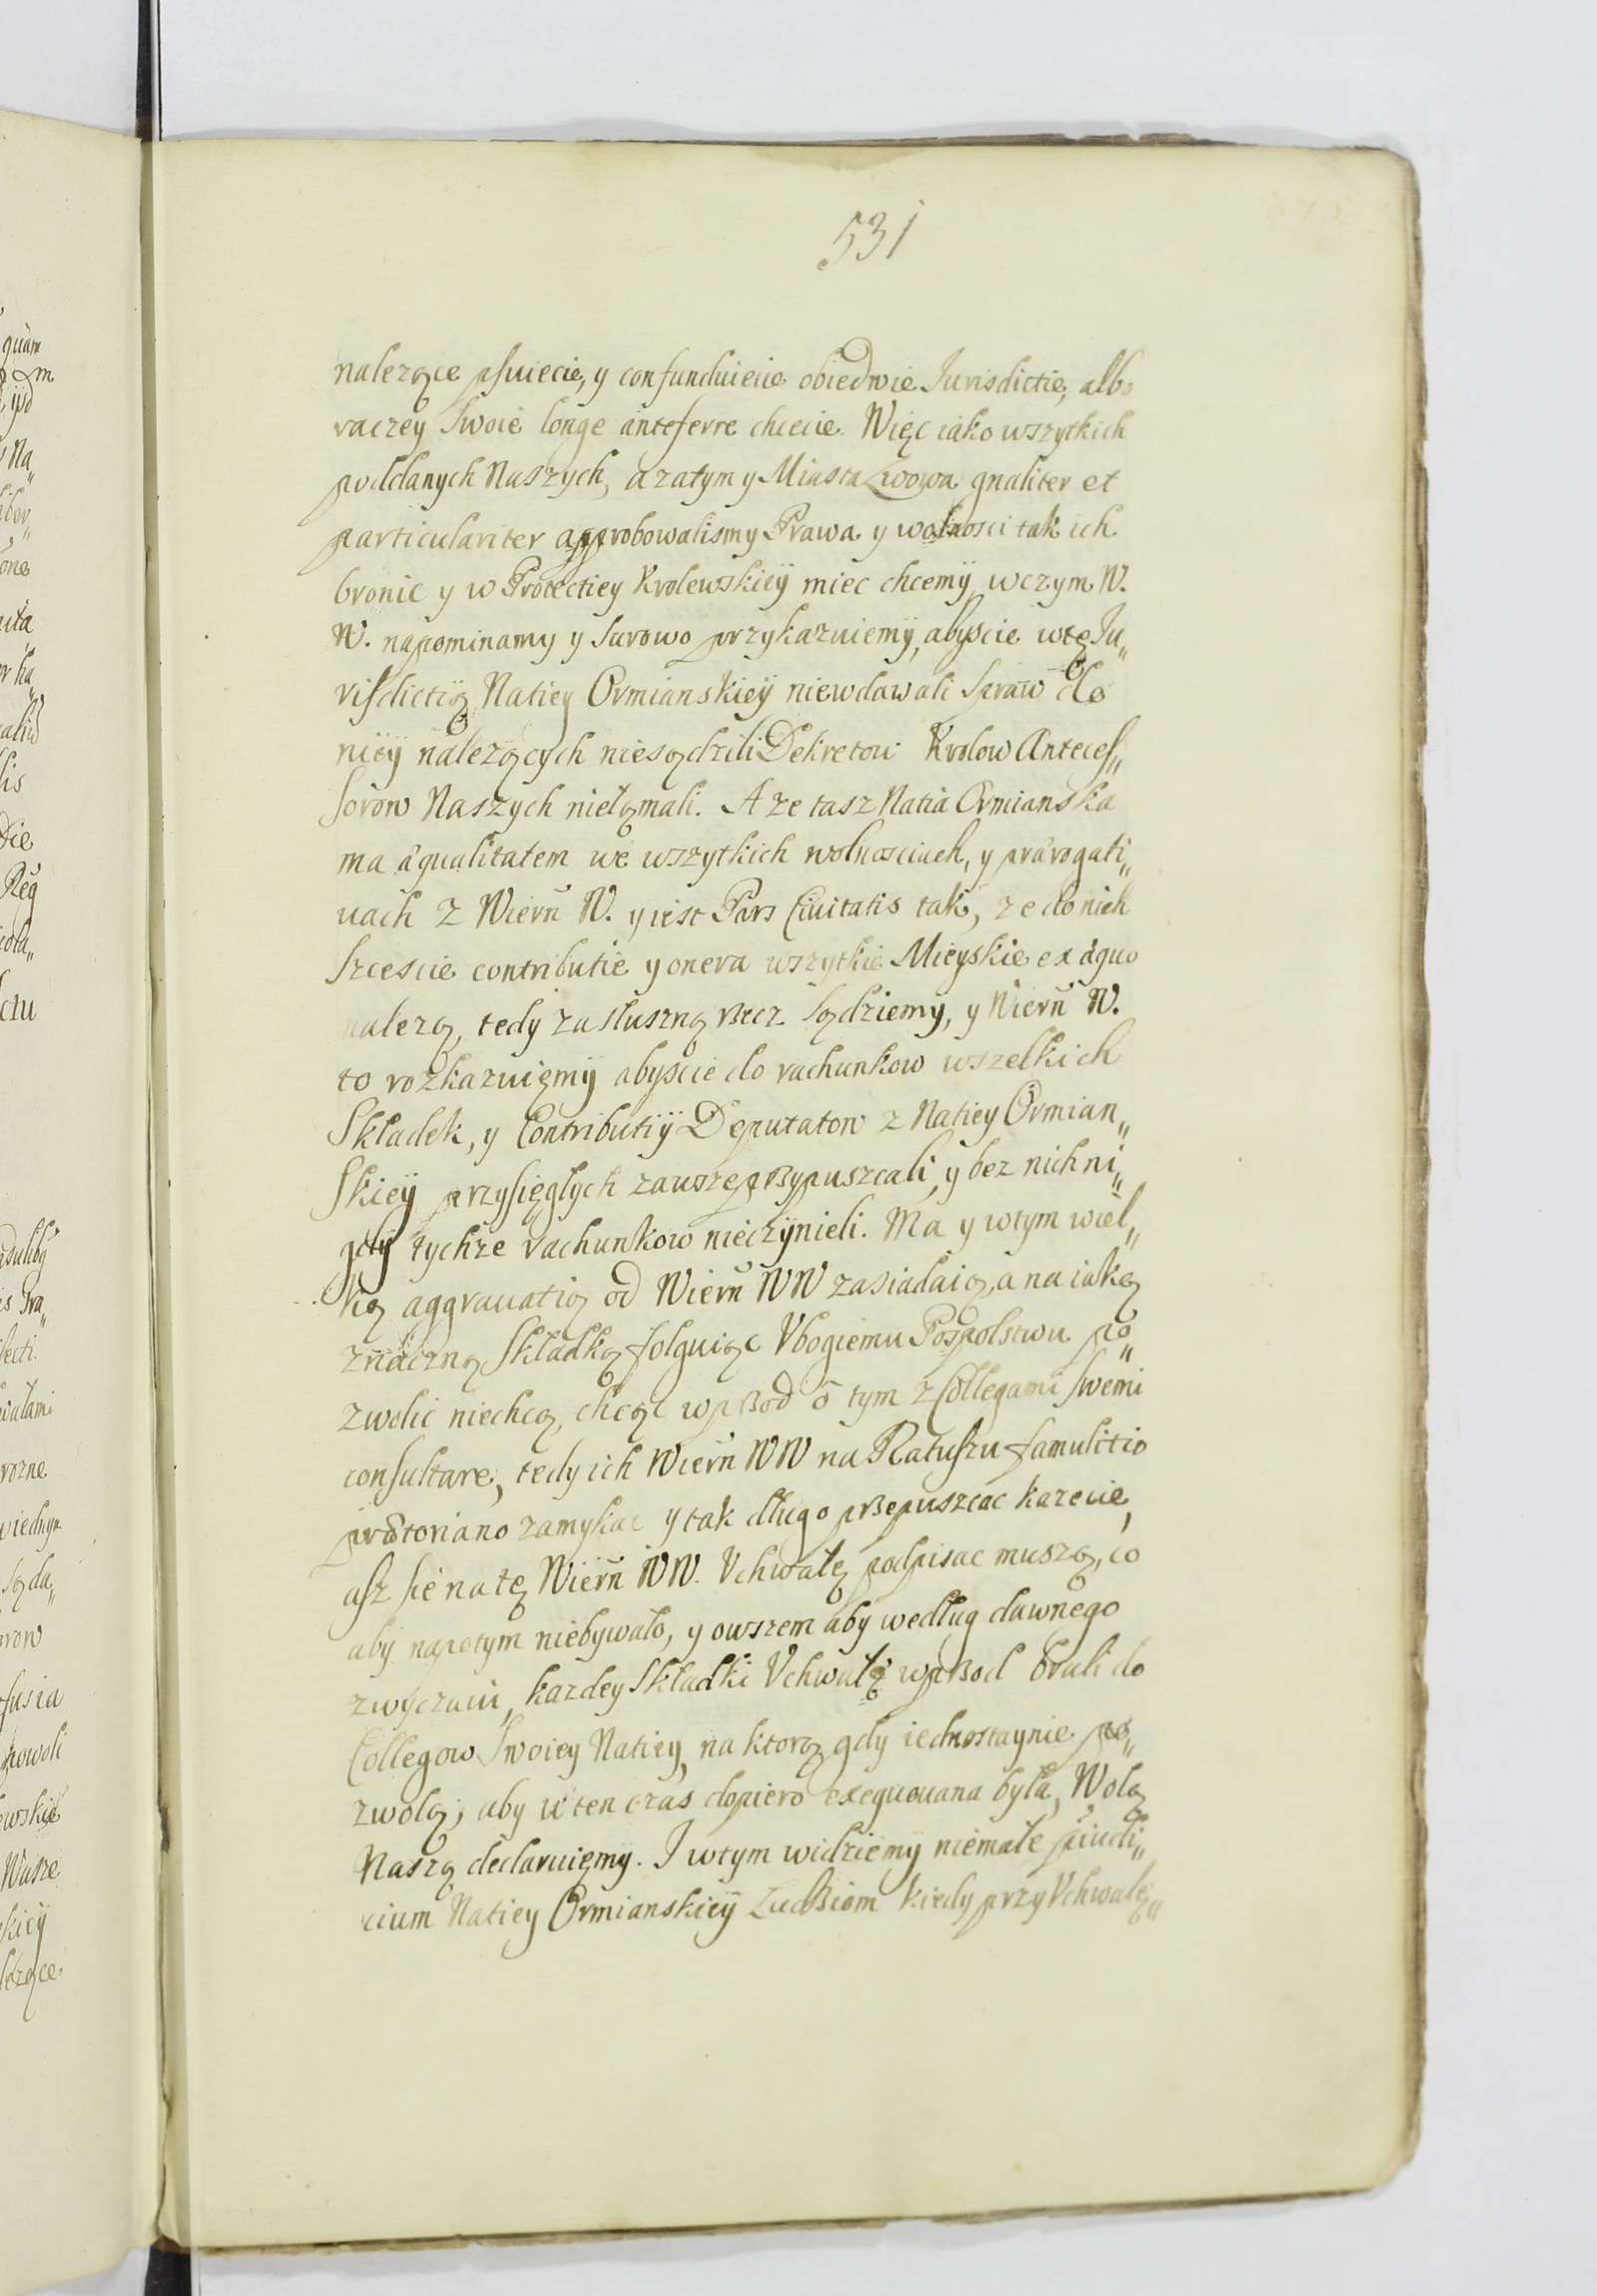 531
należące psuiecie, y confunduiecie obiedwie Jurisdictie, albo
raczey Swoie longe anteferre chcecie. Więc iako wszytkich
poddanych Naszych, a zatym y Miasta Lwowa gnaliter et
particulariter approbowalismy Prawa y wolnosci tak ich
bronic y w Protectiey Krolewskieÿ miec chcemÿ, wczym W.
W. napominamy y Surowo przykazuiemÿ, abyscie wtę Ju„
risdictią Natiey Ormianskieÿ niewdawali Spraw do
nieÿ należących niesądzili Dekretow Krolow Anteces„
sorow Naszych niełąmali. A ze tasz Natia Ormianska
ma æqualitatem we wszytkich wolnosciach, y prærogati„
uach z Wiern W. y iest Pars Ciuitatis tak, ze do nich
Szcescie contributie y onera wszytkie Mieyskie ex æquo
nalezą, tedy za słuszną Rzecz Sądziemÿ, y Wiern W.
to rozkazuięmÿ abyscie do rachunkow wszelkich
Składek, y Contributiÿ Deputatow z Natiey Ormian„
Skieÿ przysięgłych zawsze przypuszcali, y bez nich ni„
gdÿ tychze rachunkow nieczÿnieli. Ma y wtym wiel„
ką aggrauatią od Wiern WW zasiadaią, a na iaką
znaczną Składkę folguiąc Vbogiemu Pospolstwu po„
zwolic niechcą, chcąc wprzod o tym z Collegami Swemi
consultare, tedy ich Wiern WW na Ratuszu famulitio
prætoriano zamykac y tak długo przepuszcac kazecie,
asz sie na tę Wiern WW. Vchwałę podpisac muszą, co
aby napotym niebywało, y owszem aby według dawnego
zwyczaiu, kazdey Składki Vchwałę wprzod brali do
Collegow Swoiey Natiey, na ktorą gdy iednostaynie po„
zwolą, aby w ten czas dopiero exequouana była, Wolą
Naszą declaruięmy. I wtym widziemÿ niemałe piudi„
cium Natiey Ormianskieÿ Ludziom kiedy przy Vchwałę„